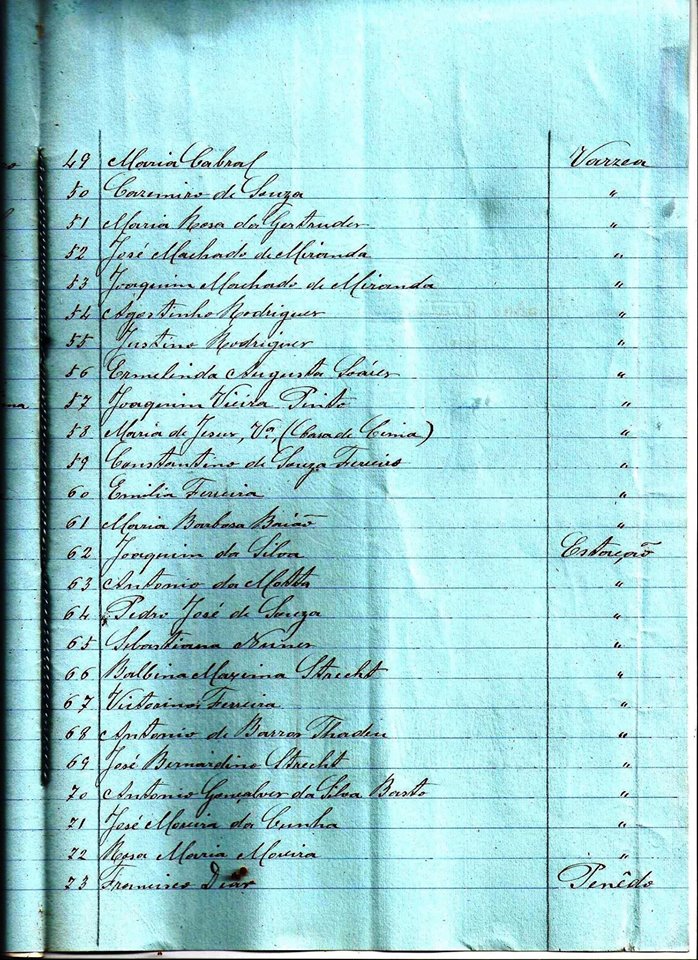 49 Maria Cabral Varzea
50 Cazemiro de Souza "
51 Maria Rosa da Gertrudes "
52 José Machado de Miranda "
53 Joaquim Machado de Miranda "
54 Agostinho Rodrigues "
55 Justino Rodrigues "
56 Ermelinda Augusta Soáres "
57 Joaquim Vieira Pinto "
58 Maria de Jesus, Vª, (Casa de Cima) "
59 Constantino de Souza Ferreira "
60 Emilia Ferreira "
61 Maria Barbosa Baião "
62 Joaquim da Silva Estação
63 Antonio da Motta "
64 Pedro José de Souza "
65 Sebastiana Nunes "
66 Balbina Maxima Strecht "
67 Victorino Ferreira "
68 Antonio de Barros Thadeu "
69 José Bernardino Strecht "
70 Antonio Gonçalves da Silva Basto "
71 José Moreira da Cunha "
72 Rosa Maria Moreira "
73 Francisco Dias Penêdo